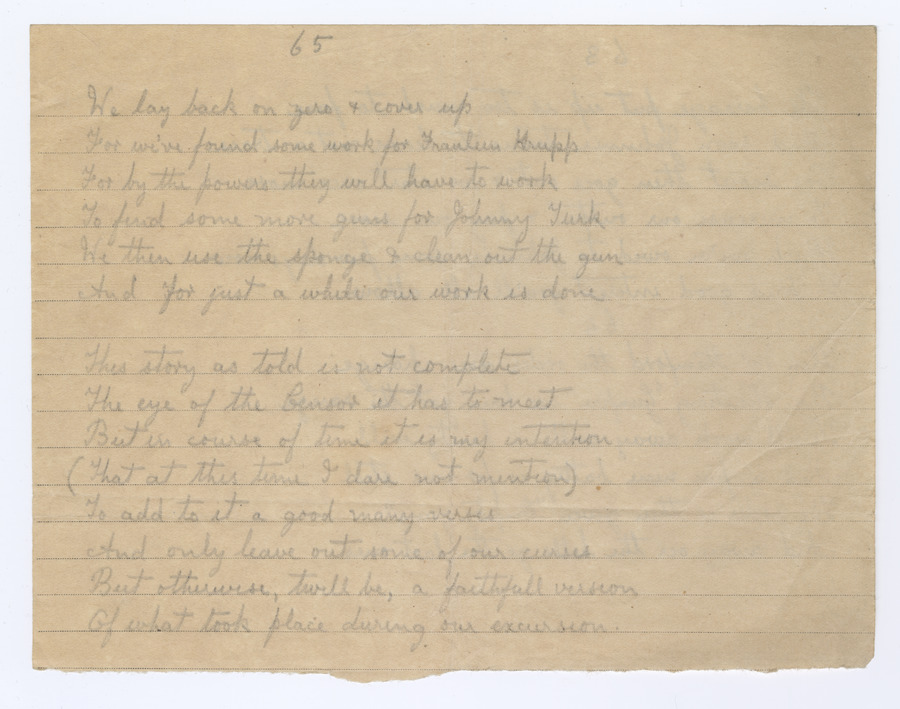 65
We lay back on zero & cover up
For we've found some work for Fraulein Krupp
For by the powers they will have to work
To find some more guns for Johnny Turk
We then use the sponge & clean out the gun
And for just a while our work is done
This story as told is not complete
The eye of the Censor it has to meet
But in course of time it is my intention
(That at this time I dare not mention)
To add to it a good many verses
And only leave out some of our curses
But otherwise, twill be, a faithfull version
Of what took place during our excursion.